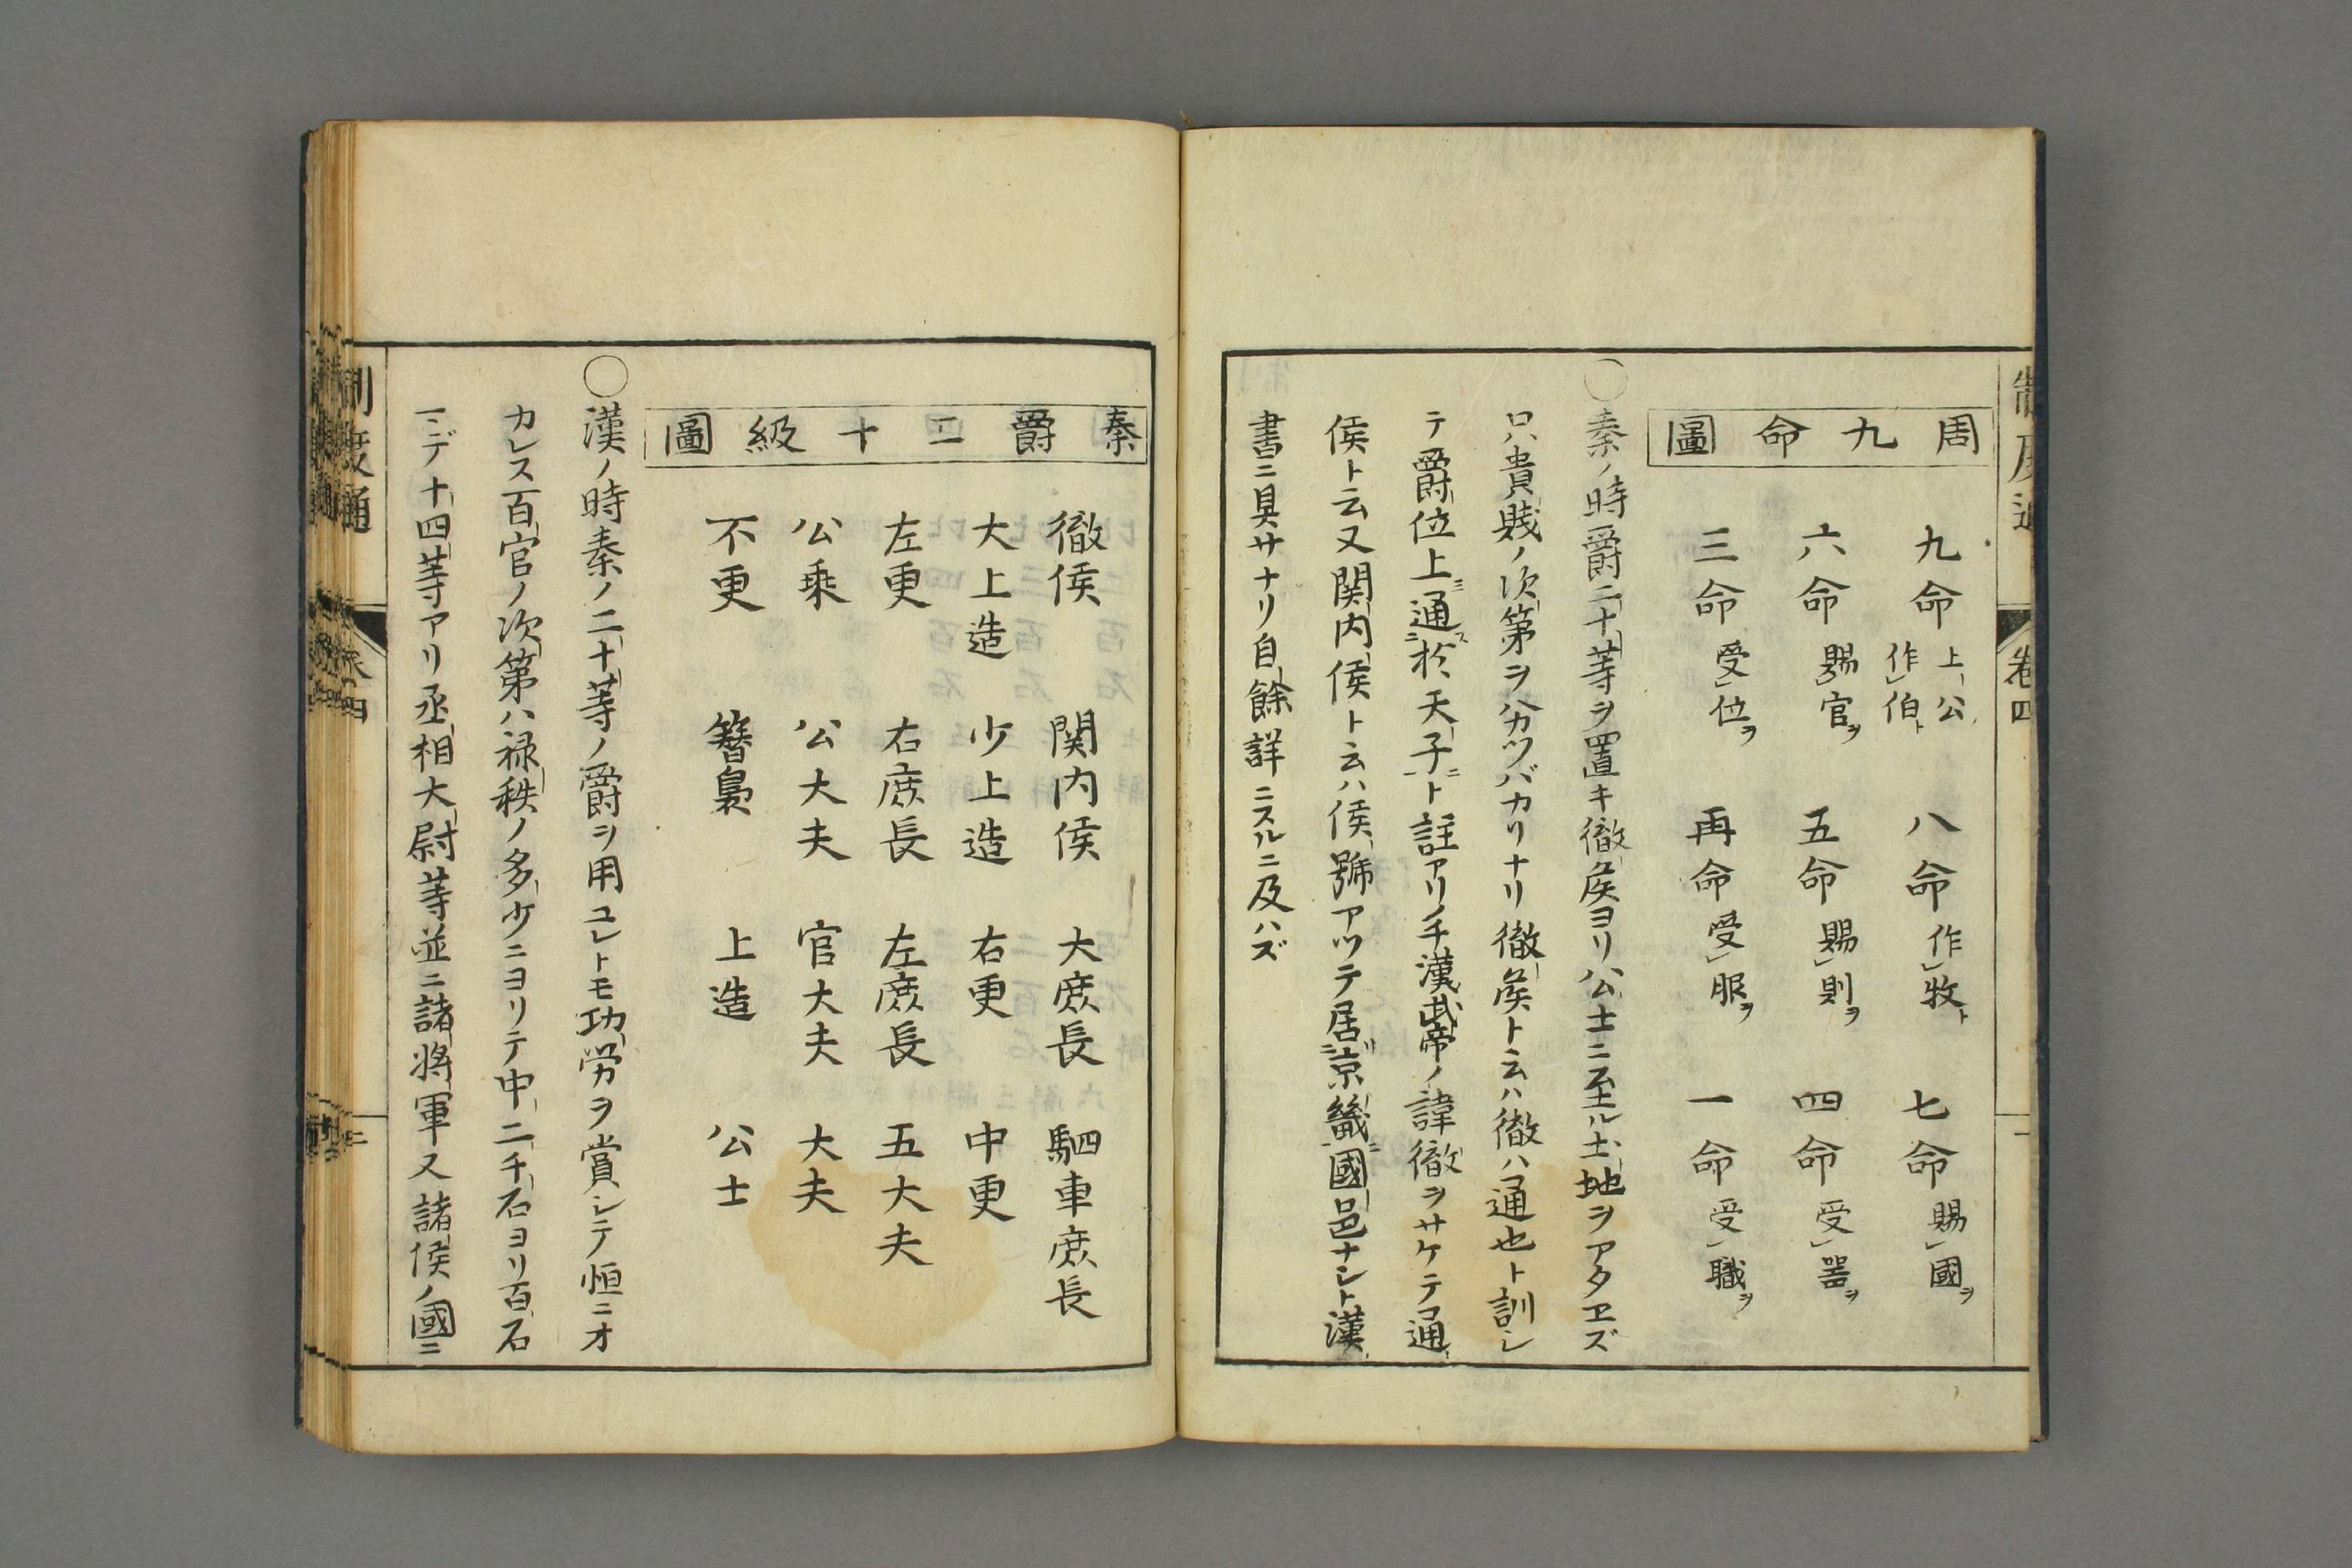 周九命圖
九命 上公作伯ト 八命 作牧ト 七命 賜國ヲ
六命 賜官ヲ 五命 賜則ヲ 四命 受器ヲ
三命 受位ヲ 再命 受服ヲ 一命 受職ヲ
○秦ノ時爵二十等ヲ置キ徹矦ヨリ公士ニ至ル土地ヲアタヱズ
只貴賎ノ次第ヲハカツバカリナリ徹矦ト云ハ徹ハ通也ト訓シ
テ爵位上通ス於天子ニト註アリノチ漢武帝ノ諱徹ヲサケテ通
侯ト云又関内侯ト云ハ侯號アツテ居京畿ニ國邑ナシト漢
書ニ具サナリ自餘詳ニスルニ及ハズ
卷四
秦爵二十級圖
徹侯 関内侯 大庶長 駟車庶長
大上造 少上造 右更 中更
左更 右庶長 左庶長 五大夫
公乘 公大夫 官大夫 大夫
不更 簪裊 上造 公士
○漢ノ時秦ノ二十等ノ爵ヲ用ユレトモ功労ヲ賞シテ恒ニオ
カレス百官ノ次第ハ禄秩ノ多少ニヨリテ中二千石ヨリ百石
マデ十四等アリ丞相大尉等並ニ諸將軍又諸侯ノ國ニ
制度通